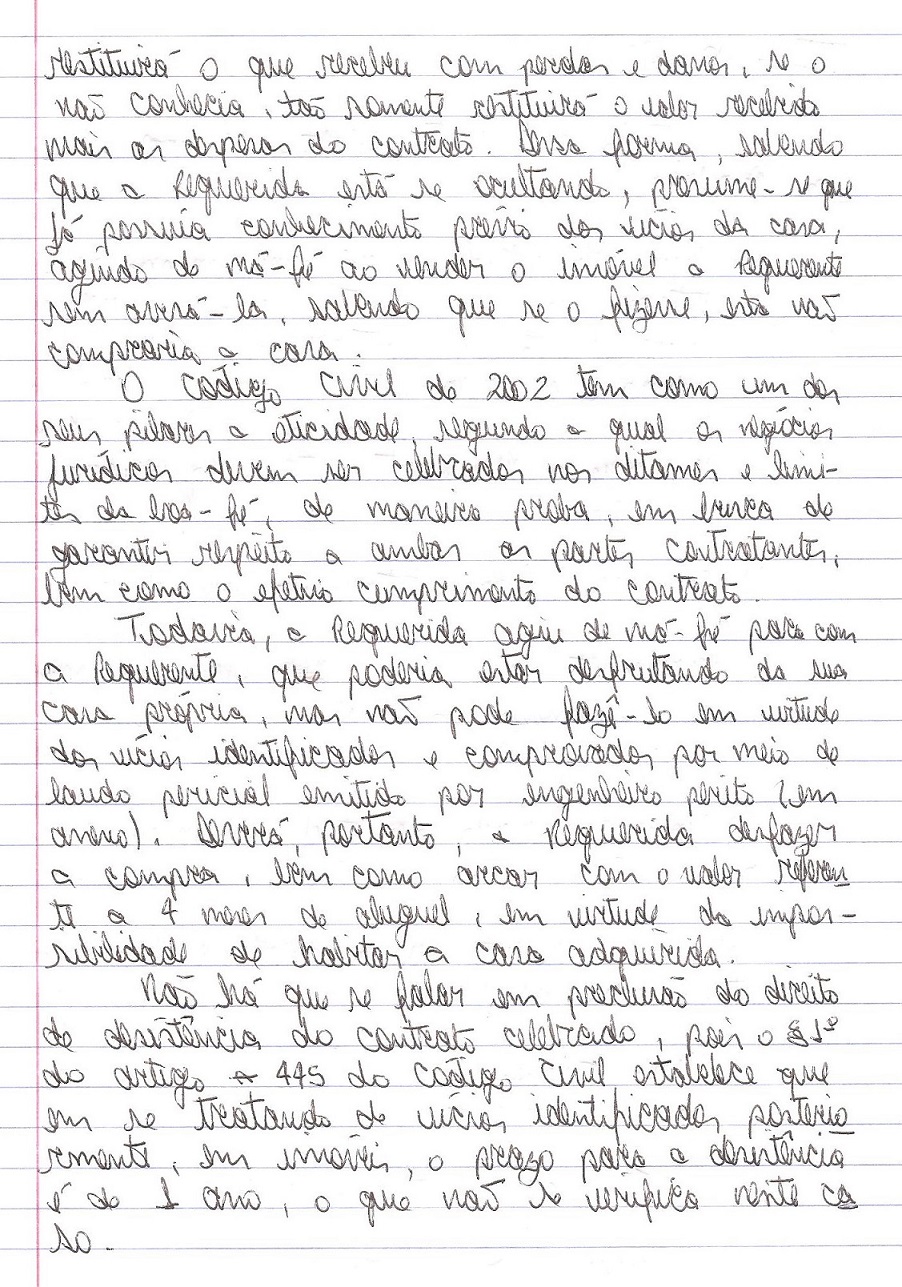 restituirá o que recebeu com perdas e danos, se o
não conhecia, tão somente restituirá o valor recebido
mais as despesas do contrato. Dessa forma, sabendo
que a Requerida está se ocultando, presume-se que
já possuia conhecimento prévio dos vícios da casa,
agindo de má-fé ao vender o imóvel a Requerente
sem avisá-la, sabendo que se o fizesse, esta não
compraria a casa.
O Código Civil de 2002 tem como um dos
seus pilares a eticidade, segundo a qual os negócios
jurídicos devem ser celebrados nos ditames e limi-
tes da boa-fé, de maneira proba, em busca de
garantir respeito a ambas as partes contratantes,
bem como o efetivo cumprimento do contrato.
Todavia, a Requerida agiu de má-fé para com
a Requerente, que poderia estar desfrutando da sua
casa própria, mas não pode fazê-lo em virtude
dos vícios identificados e comprovados por meio de
laudo pericial emitido por engenheiro perito (em
anexo). Deverá, portanto, a Requerida desfazer
a compra, bem como arcar com o valor referen
te a 4 meses de aluguel, em virtude da impos-
sibilidade de habitar a casa adquirida.
Não há que se falar em preclusão do direito
de desistência do contrato celebrado, pois o §1º
do artigo 445 do Código Civil estabelece que
em se tratando de vícios identificados posterio
rmente, em imóveis, o prazo para a desistência
é de 1 ano, o que não se verifica neste ca
so.